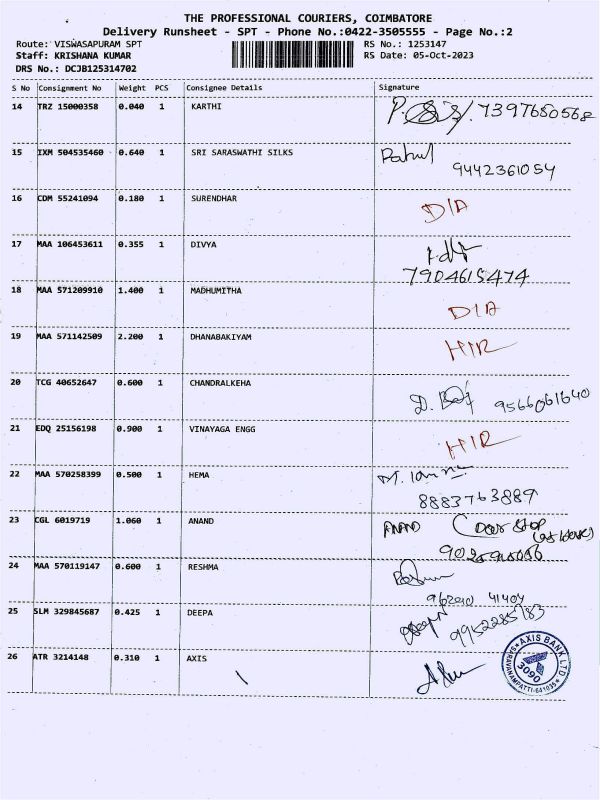 THE PROFESSIONAL COURIERS, COIMBATORE
Delivery Runsheet - SPT - Phone No.:0422-3505555 - Page No.:2
Route: VISWASAPURAM SPT RS No.: 1253147
Staff: KRISHANA KUMAR RS Date: 05-Oct-2023
DRS No.: DCJB125314702
S No Consignment No Weight PCS Consignee Details Signature
14 TRZ 15000358 0.040 1 KARTHI 7397680568
15 IXM 504535460 0.640 1 SRI SARASWATHI SILKS Rahul
9442361054
16 CDM 55241094 0.180 1 SURENDHAR D/A
17 MAA 106453611 0.355 1 DIVYA
7904615474
18 MAA 571209910 1.400 1 MADHUMITHA D/A
19 MAA 571142509 2.200 1 DHANABAKIYAM H/R
20 TCG 40652647 0.600 1 CHANDRALKEHA 9566061640
21 EDQ 25156198 0.900 1 VINAYAGA ENGG H/R
22 MAA 570258399 0.500 1 HEMA
8883763889
23 CGL 6019719 1.060 1 ANAND ANAND (Door Stop
24 MAA 570119147 0.600 1 RESHMA
25 SLM 329845687 0.425 1 DEEPA 9952285783
26 ATR 3214148 0.310 1 AXIS
AXIS BANK LTD
3090
SARAVANAMPATTI-641035